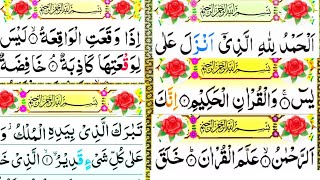 بِسْمِ اللّٰهِ الرَّحْمٰنِ الرَّحِيْمِ
اَلْحَمْدُ لِلّٰهِ الَّذِیْۤ اَنْزَلَ عَلٰی
بِسْمِ اللّٰهِ الرَّحْمٰنِ الرَّحِيْمِ
یٰسٓ ۚ وَالْقُرْاٰنِ الْحَكِیْمِ ۙ اِنَّكَ
بِسْمِ اللّٰهِ الرَّحْمٰنِ الرَّحِيْمِ
اَلرَّحْمٰنُ ۙ عَلَّمَ الْقُرْاٰنَ ؕ خَلَقَ
بِسْمِ اللّٰهِ الرَّحْمٰنِ الرَّحِيْمِ
اِذَا وَقَعَتِ الْوَاقِعَةُ ۙ لَیْسَ
لِوَقْعَتِهَا كَاذِبَةٌ ۘ خَافِضَةٌ
بِسْمِ اللّٰهِ الرَّحْمٰنِ الرَّحِيْمِ
تَبٰرَكَ الَّذِیْ بِیَدِهِ الْمُلْكُ ؗ وَ
عَلٰی كُلِّ شَیْءٍ قَدِیْرُ ۙ الَّذِیْ